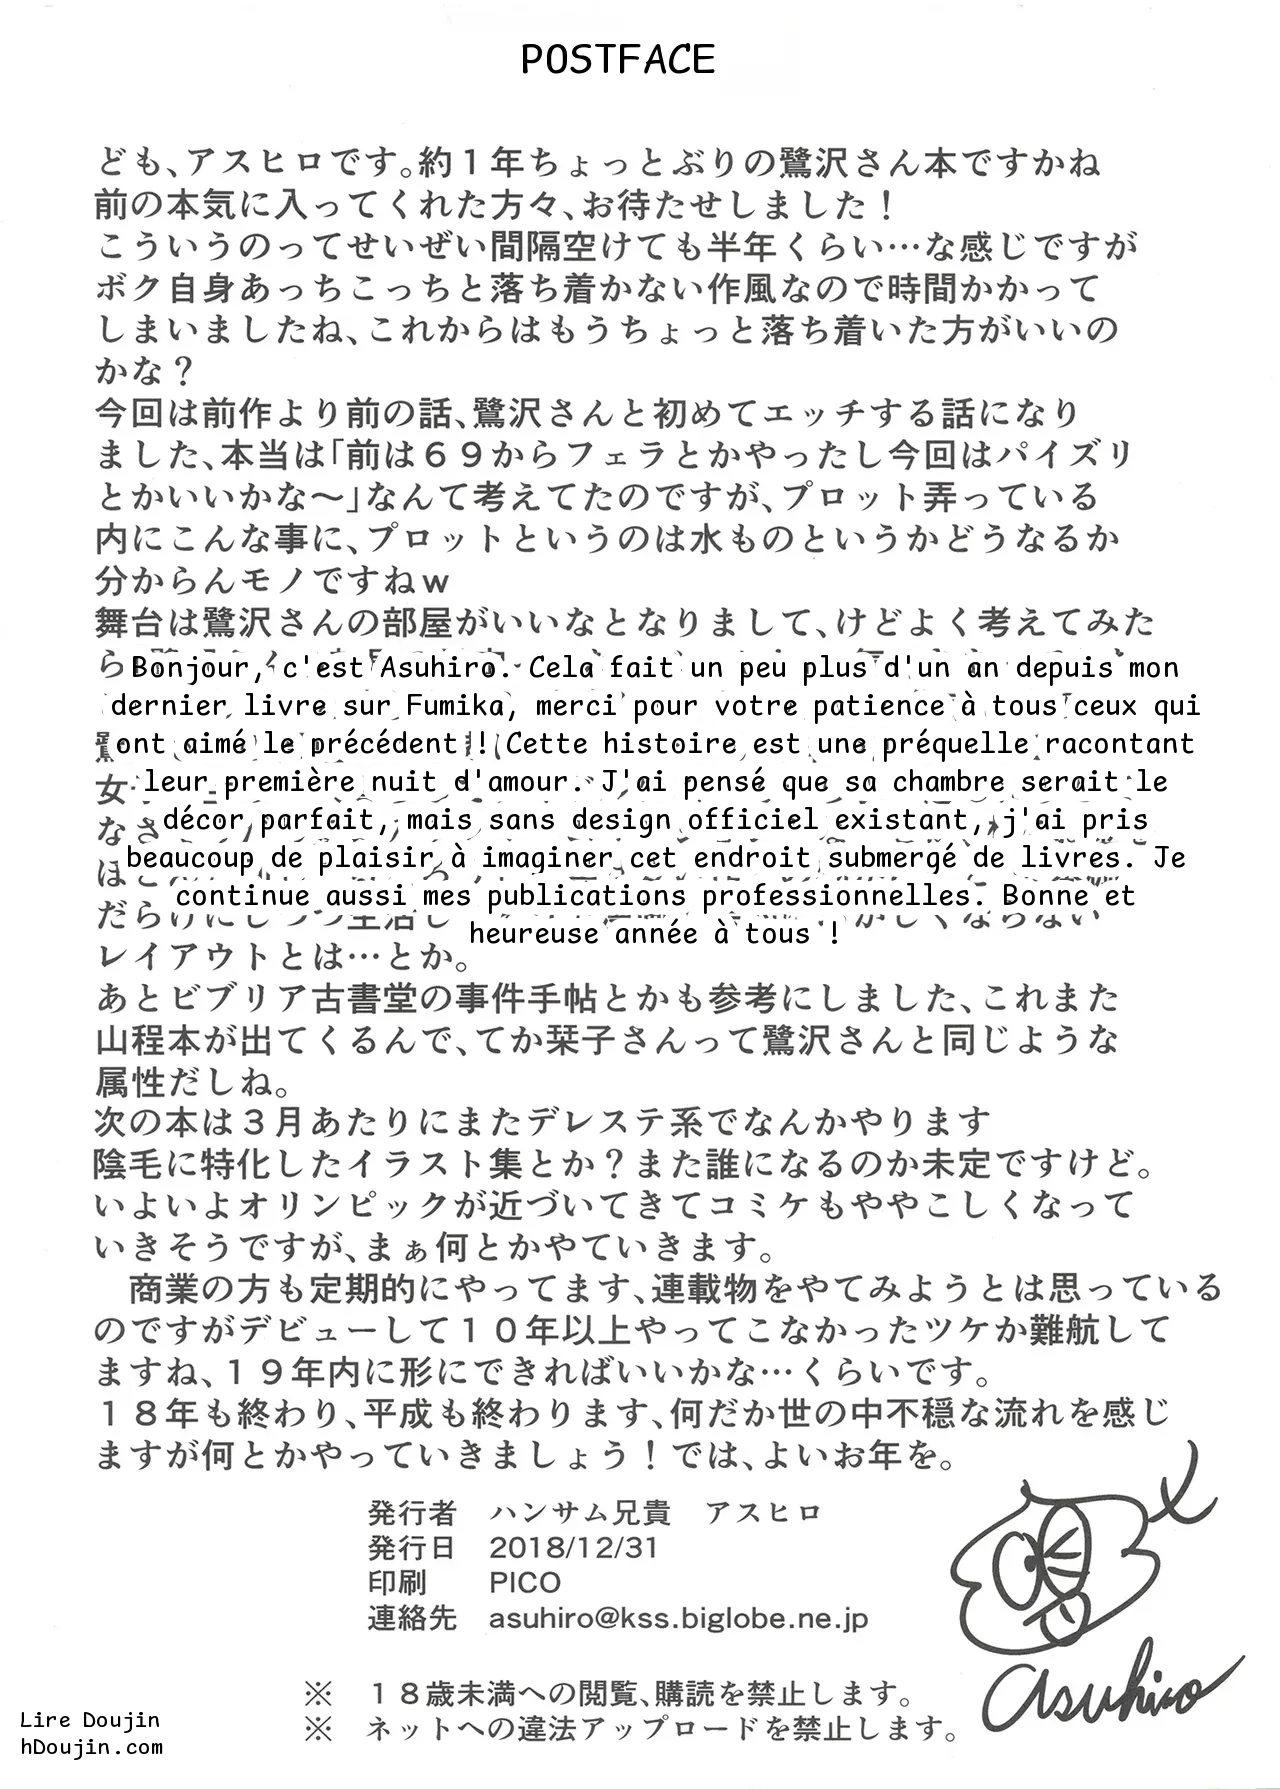 POSTFACE
ども、アスヒロです。約1年ちょっとぶりの鷺沢さん本ですかね
前の本気に入ってくれた方々、お待たせしました！
こういうのってせいぜい間隔空けても半年くらい…な感じですが
ボク自身あっちこっちと落ち着かない作風なので時間かかって
しまいましたね、これからはもうちょっと落ち着いた方がいいの
かな？
今回は前作より前の話、鷺沢さんと初めてエッチする話になり
ました、本当は「前は６９からフェラとかやったし今回はパイズリ
とかいいかな～」なんて考えてたのですが、プロット弄っている
内にこんな事に、プロットというのは水ものというかどうなるか
分からんモノですねｗ
舞台は鷺沢さんの部屋がいいなとなりまして、けどよく考えてみた
ら
Bonjour, c'est Asuhiro. Cela fait un peu plus d'un an depuis mon
dernier livre sur Fumika, merci pour votre patience à tous ceux qui
ont aimé le précédent ! Cette histoire est une préquelle racontant
leur première nuit d'amour. J'ai pensé que sa chambre serait le
décor parfait, mais sans design officiel existant, j'ai pris
beaucoup de plaisir à imaginer cet endroit submergé de livres. Je
continue aussi mes publications professionnelles. Bonne et
heureuse année à tous !
レイアウトとは…とか。
あとビブリア古書堂の事件手帖とかも参考にしました、これまた
山程本が出てくるんで、てか栞子さんって鷺沢さんと同じような
属性だしね。
次の本は３月あたりにまたデレステ系でなんかやります
陰毛に特化したイラスト集とか？また誰になるのか未定ですけど。
いよいよオリンピックが近づいてきてコミケもややこしくなって
いきそうですが、まぁ何とかやていきます。
商業の方も定期的にやってます、連載物をやてみようとは思っている
のですがデビューして１０年以上やってこなかったツケか難航して
ますね、１９年内に形にできればいいかな…くらいです。
１８年も終わり、平成も終わります、何だか世の中不穏な流れを感じ
ますが何とかやっていきましょう！では、よいお年を。
発行者 ハンサム兄貴 アスヒロ
発行日 2018/12/31
印刷 PICO
連絡先 asuhiro@kss.biglobe.ne.jp
asuhiro
※ １８歳未満への閲覧、購読を禁止します。
※ ネットへの違法アップロードを禁止します。
Lire Doujin
hDoujin.com